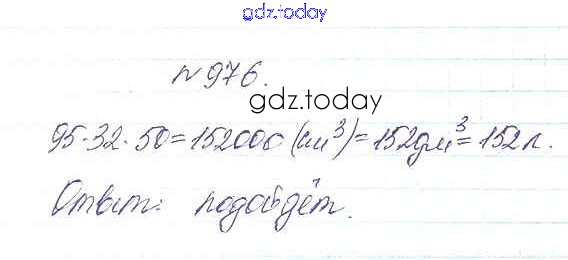 gdz.today
№976.
gdz.today
95·32·50=152000(см³)=152дм³=152л.
Ответ: подойдёт.